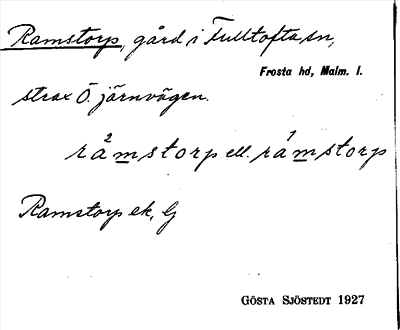 Ramstorp, gård i Fulltofta sn,
Frosta hd, Malm. l.
strax Ö. järnvägen.
rå²mstorp ell. rå¹mstorp
Ramstorp ek, Lj
GÖSTA SJÖSTEDT 1927